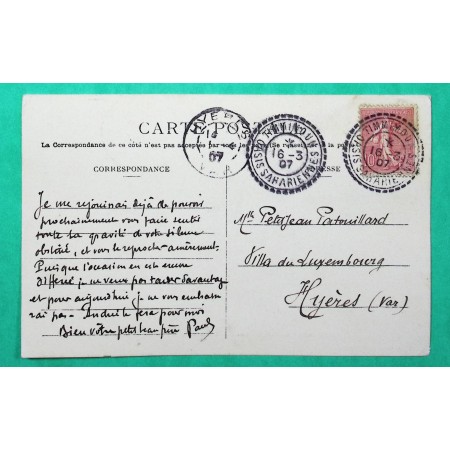 CARTE POSTALE
La Correspondance de ce côté n'est pas acceptée par
CORRESPONDANCE
HYÈRES
07
VAR
TIMMIMOUN
16-3
07
OASIS SAHARIENNES
TIMMIMOUN
07
OASIS SAHARIENNES
Je me réjouissais déjà de pouvoir
prochainement vous faire sentir
toute la gravité de votre silence
obstiné, et vous le reprocher amèrement.
Puisque l'occasion en est encore
différée je ne veux pas tarder davantage
et pour aujourd'hui je ne vous embrasse
rai pas. André le fera pour moi
Bien votre petit beau père Paul
Mlle PetitJean Patouillard
Villa du Luxembourg
Hyères (Var)